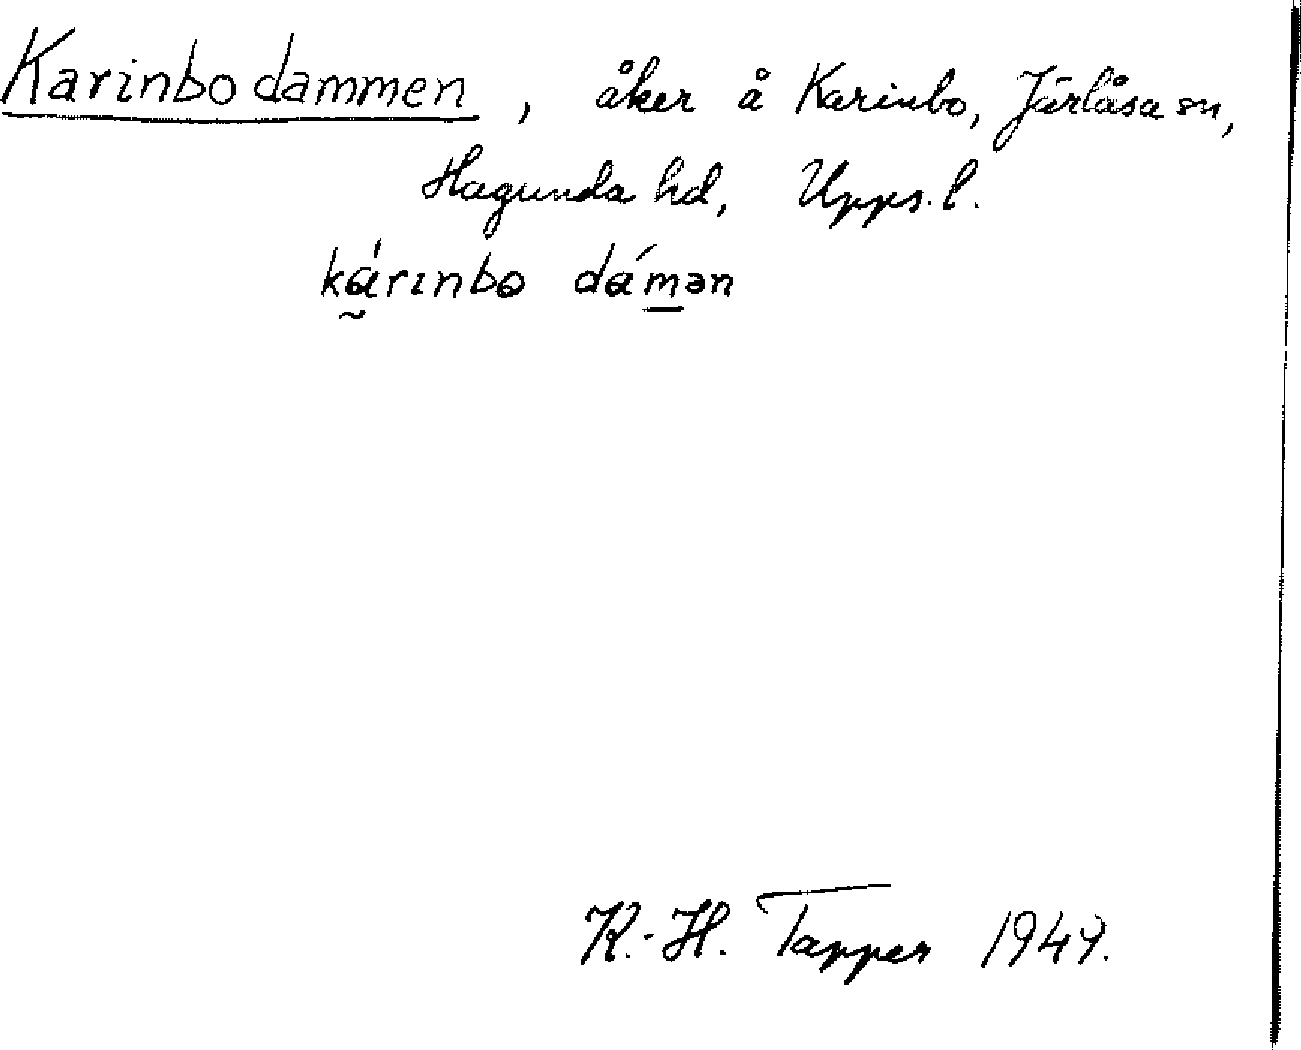 Karinbodammen, åker å Karinbo, Järlåsa sn,
Hagunda hd, Upps. l.
kárınbo dámən
K.-H. Tapper 1949.